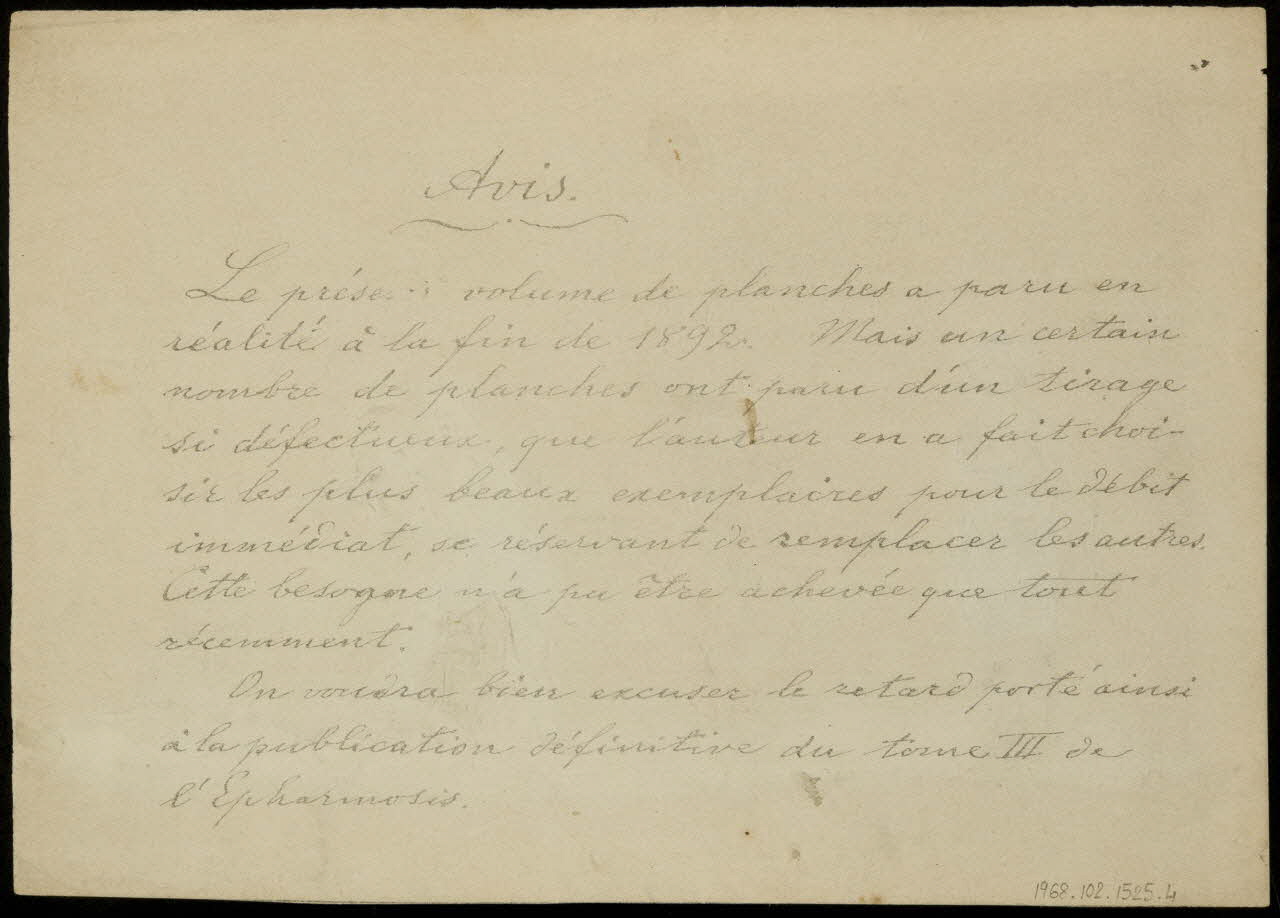 Avis.
Le présent volume de planches a paru en
réalité à la fin de 1892. Mais un certain
nombre de planches ont paru d'un tirage
si défectueux, que l'auteur en a fait choi-
sir les plus beaux exemplaires pour le débit
immédiat, se réservant de remplacer les autres.
Cette besogne n'a pu être achevée que tout
récemment.
On voudra bien excuser le retard porté ainsi
à la publication définitive du tome III de
l'Epharmosis.
1968.102.1525.4